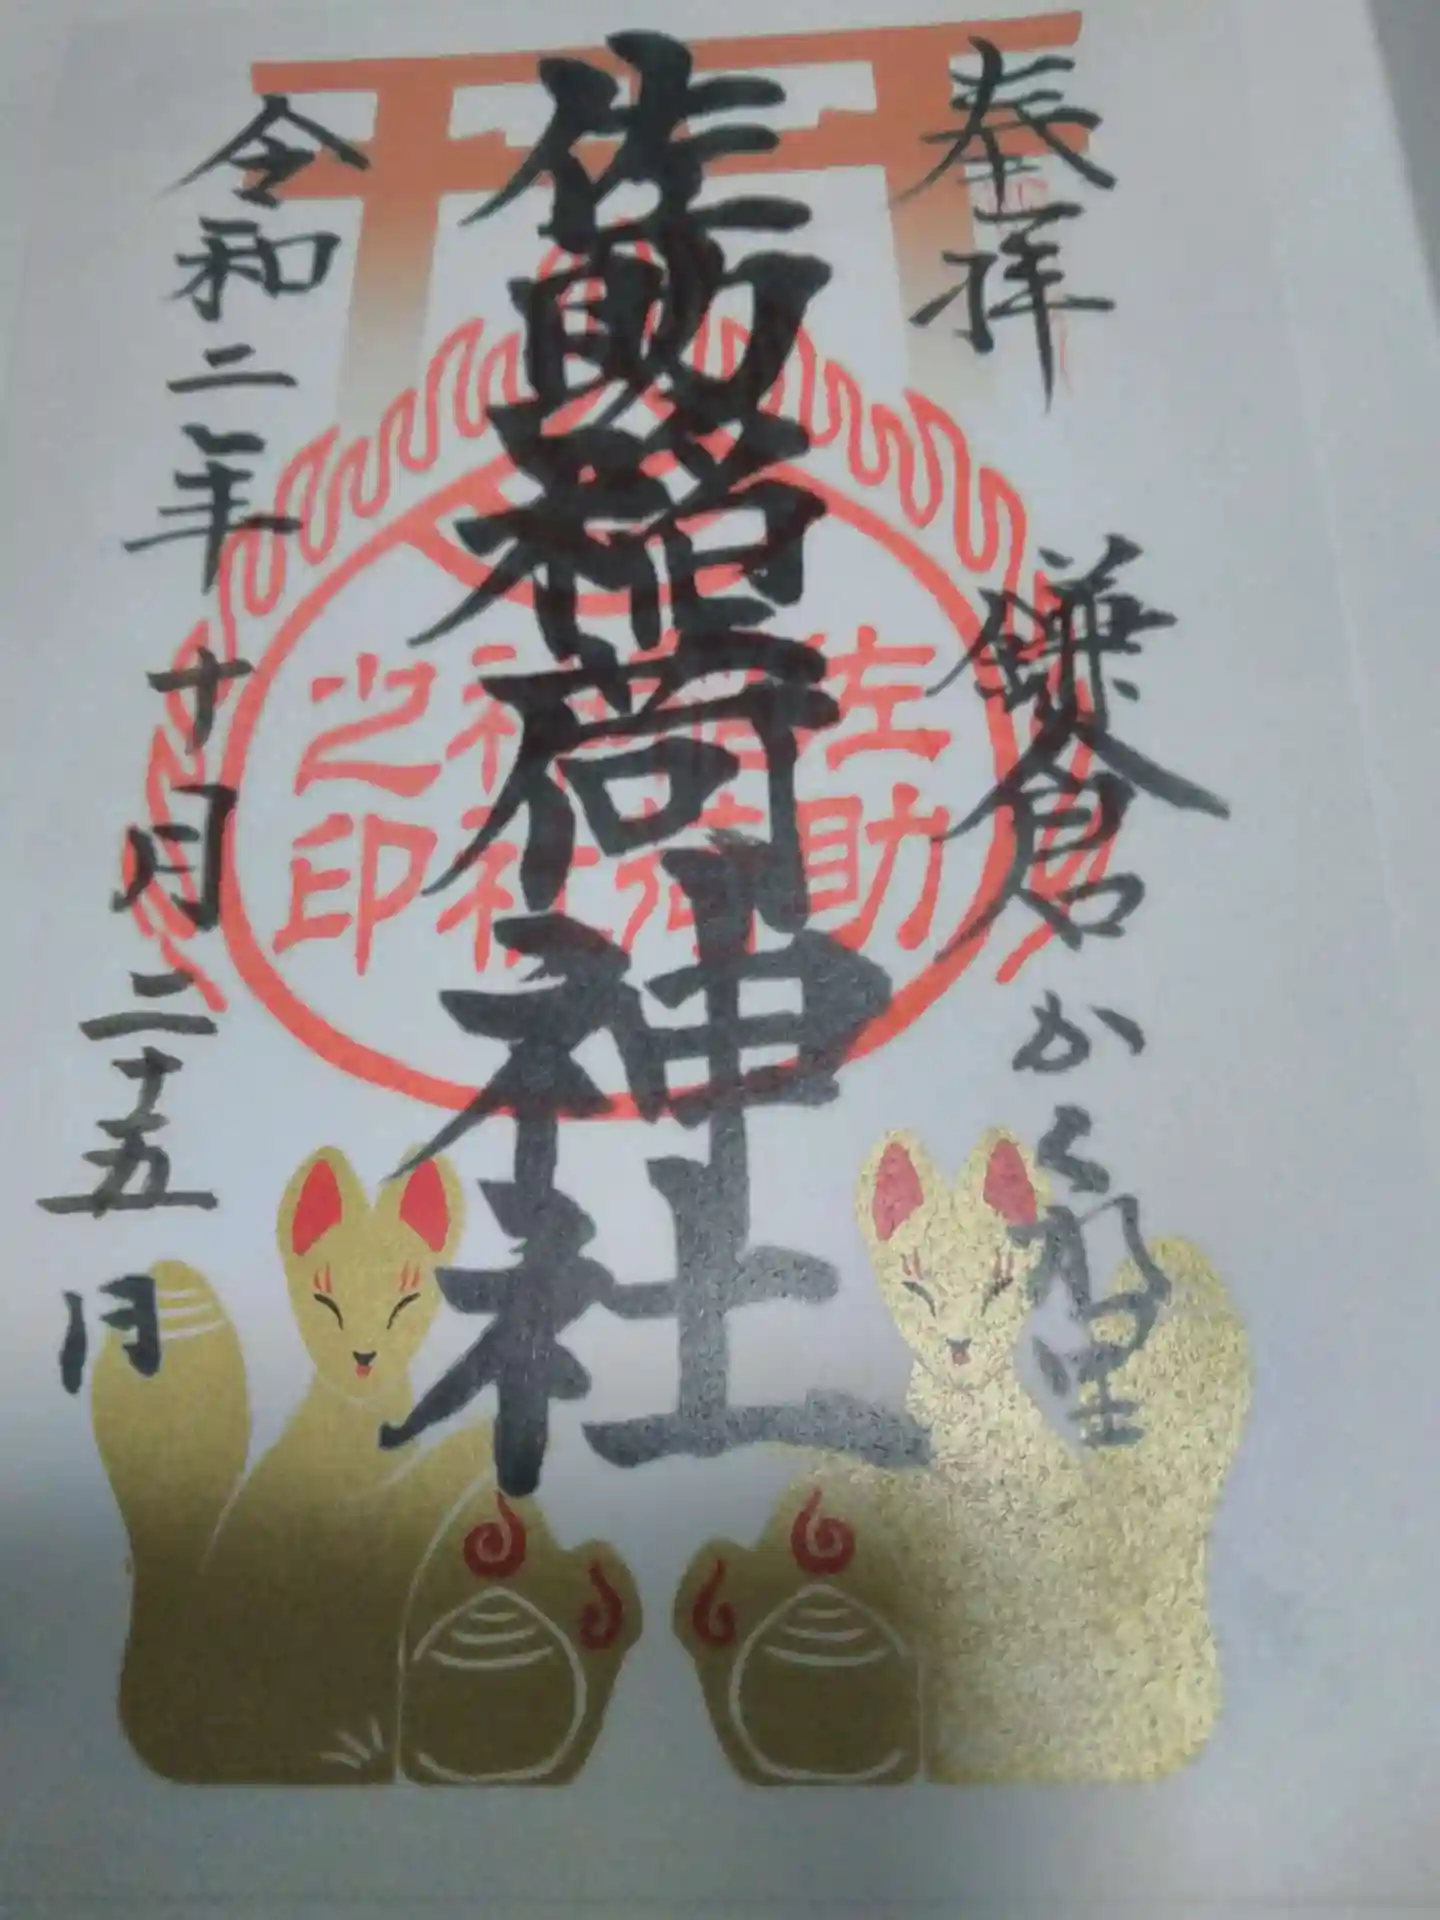 奉拝
鎌倉かくれ里
佐助稲荷神社
佐助稲荷神社之印
令和二年十月二十五日